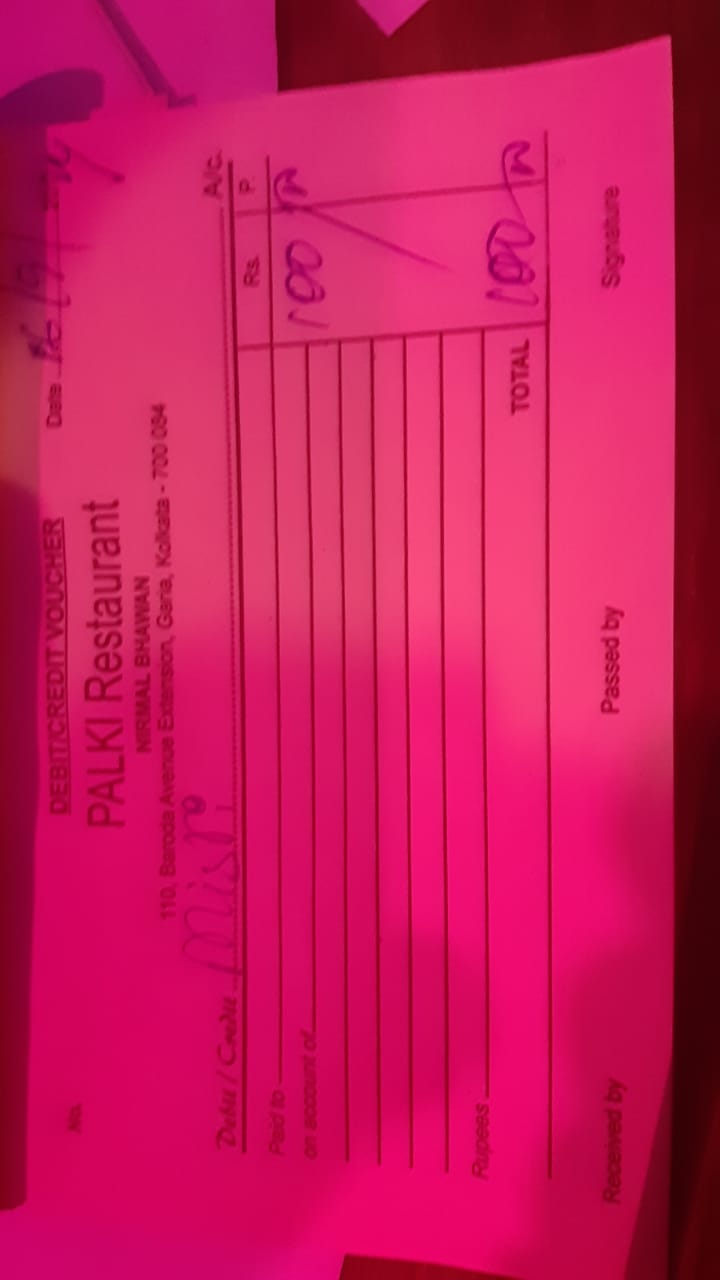 DEBIT/CREDIT VOUCHER
No.
Date 16/9/24
PALKI Restaurant
NIRMAL BHAWAN
110, Baroda Avenue Extension, Garia, Kolkata - 700 084
Debit / Credit Misri A/c.
Rs. P.
Paid to 100
on account of
Rupees
TOTAL 100
Received by Passed by Signature